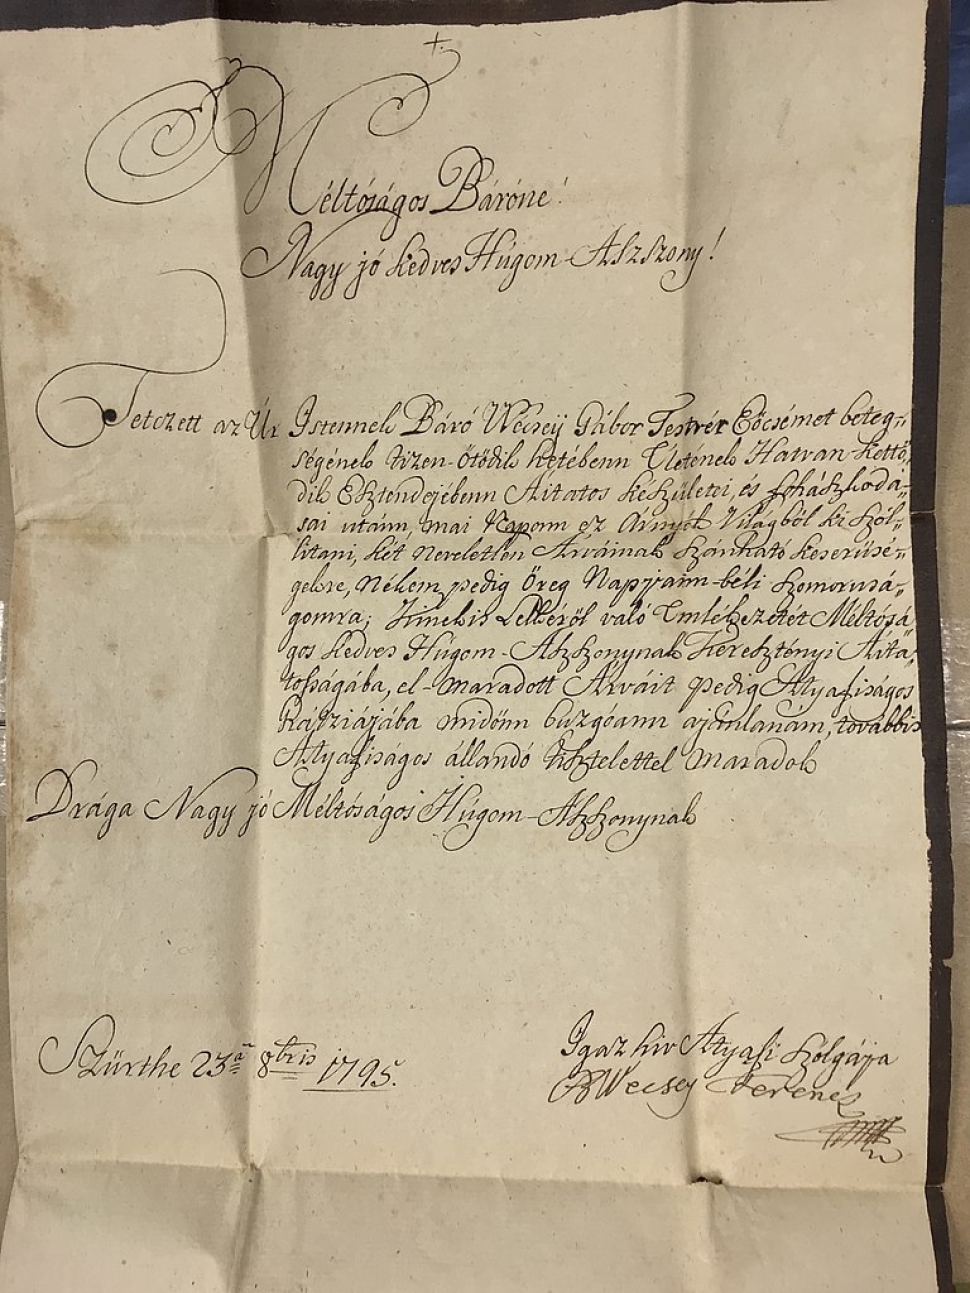 +
Méltóságos Báróné!
Nagy jó kedves Húgom-Aszszony!
Tetczett az Úr Istennek Báró Wécseÿ Gábor Testvér Eőcsémet beteg„
ségének tizen-ötödik hetébenn Életének Hatvan-kettő„
dik Esztendejébenn Áitatos készületei, és
sai utánn, mai Naponn ez Árnyék Világból ki szól„
litani, két neveletlen Árváinak szánható keserüsé„
gekre, nékem pedig Öreg Napjaim-béli szomorusá„
gomra; Kinekis Lelkéről való Emlékezetét Méltósá
gos kedves Húgom-Aszszonynak Keresztényi Áita„
tosságába, el-maradott Árváit pedig Atyafiságos
Grátziájába midőnn buzgóann ajánlanám, továbbis
Atyafiságos állandó tisztelettel maradok
Drága Nagy jó Méltóságos Húgom-Aszszonynak
Szürthe 23ª 8bris 1795.
Igaz hiv Atyafi szolgája
B Wecsey Ferencz